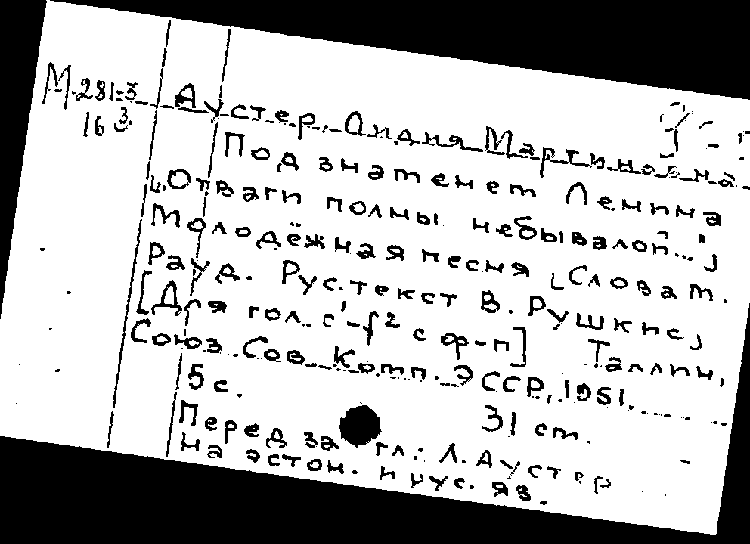 М.281-3 Аустер, Лидия Мартиновна
16 3
Под знаменем Ленина
"Отваги полны небывалой..."
Молодёжная песня [Слова М.
Рауд. Рус. текст В. Рушкис]
[Для гол. с¹-f² с ф-п] Таллин,
Союз Сов Комп. ЭССР, 1951.
5 с. 31 cm.
Перед загл.: Л. Аустер
На эстон. и рус. яз.